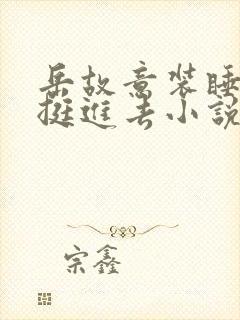 岳故意装睡
挺进去小說
宗鑫